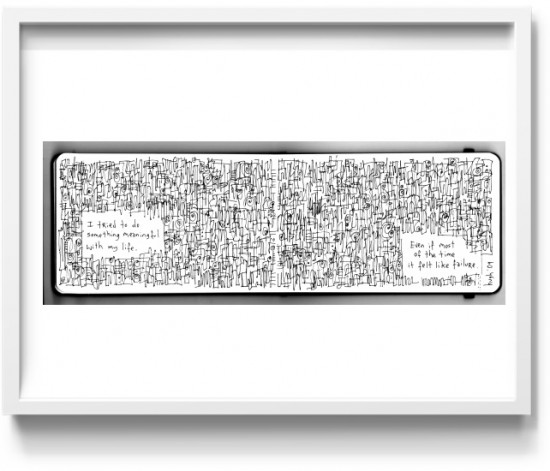 I tried to do
something meaningful
with my life.
Even if most
of the time
it felt like failure.